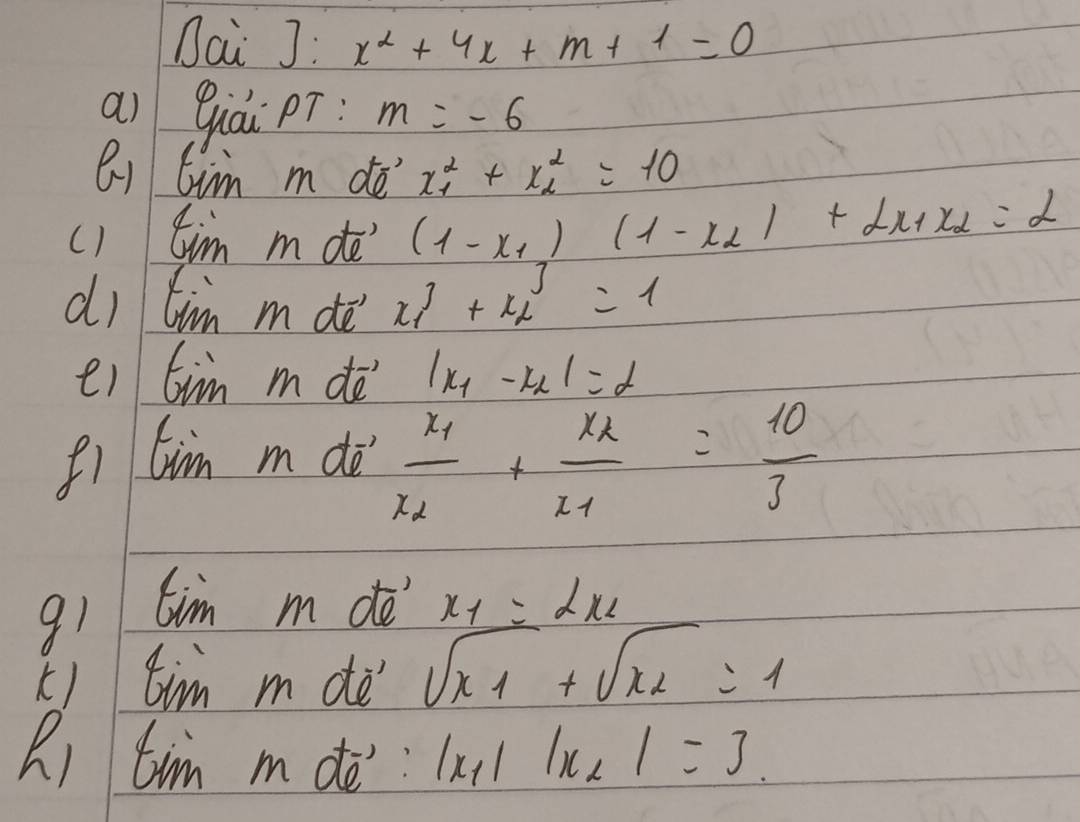 Bài 3: x² + 4x + m + 1 = 0
a) Giải PT: m = -6
b) tìm m để x₁² + x₂² = 10
c) tìm m để (1 - x₁) (1 - x₂) + 2x₁x₂ = 2
d) tìm m để x₁³ + x₂³ = 1
e) tìm m để |x₁ - x₂| = 2
f) tìm m để x₁/x₂ + x₂/x₁ = 10/3
g) tìm m để x₁ = 2x₂
k) tìm m để √x₁ + √x₂ = 1
h) tìm m để: |x₁| |x₂| = 3.